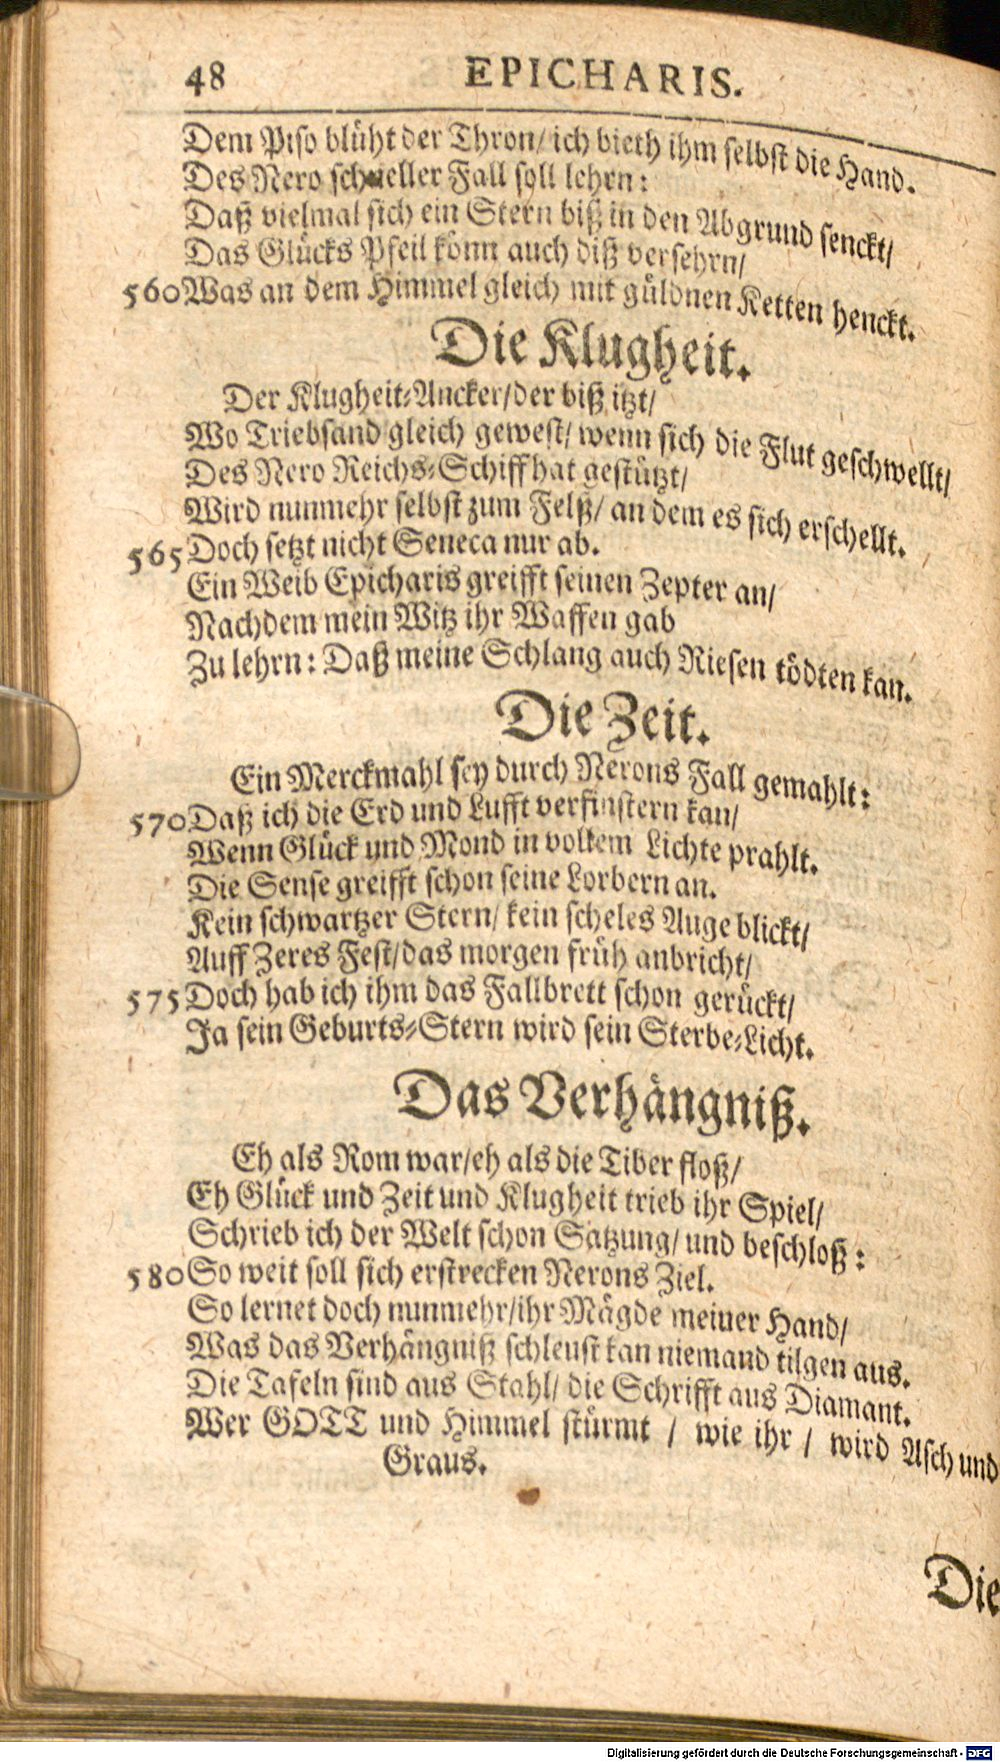 48 EPICHARIS.
Dem Piso blüht der Thron/ ich bieth ihm selbst die Hand.
Des Nero schneller Fall soll lehrn:
Daß vielmal sich ein Stern biß in den Abgrund senckt/
Das Glücks Pfeil könn auch diß versehrn/
560 Was an dem Himmel gleich mit güldnen Ketten henckt.
Die Klugheit.
Der Klugheit-Ancker/der biß itzt/
Wo Triebsand gleich gewest/ wenn sich die Flut geschwellt/
Des Nero Reichs-Schiff hat gestützt/
Wird nunmehr selbst zum Felß/ an dem es sich erschellt.
565 Doch setzt nicht Seneca nur ab.
Ein Weib Epicharis greifft seinen Zepter an/
Nachdem mein Witz ihr Waffen gab
Zu lehrn: Daß meine Schlang auch Riesen tödten kan.
Die Zeit.
Ein Merckmahl sey durch Nerons Fall gemahlt:
570 Daß ich die Erd und Lufft verfinstern kan/
Wenn Glück und Mond in vollem Lichte prahlt.
Die Sense greifft schon seine Lorbern an.
Kein schwartzer Stern/ kein scheles Auge blickt/
Auff Zeres Fest/das morgen früh anbricht/
575 Doch hab ich ihm das Fallbrett schon gerückt/
Ja sein Geburts-Stern wird sein Sterbe-Licht.
Das Verhängniß.
Eh als Rom war/eh als die Tiber floß/
Eh Glück und Zeit und Klugheit trieb ihr Spiel/
Schrieb ich der Welt schon Satzung/ und beschloß:
580 So weit soll sich erstrecken Nerons Ziel.
So lernet doch nunmehr/ihr Mägde meiner Hand/
Was das Verhängniß schleust kan niemand tilgen aus.
Die Tafeln sind aus Stahl/ die Schrifft aus Diamant.
Wer GOTT und Himmel stürmt / wie ihr / wird Asch und
Graus.
Die
Digitalisierung gefördert durch die Deutsche Forschungsgemeinschaft - DFG